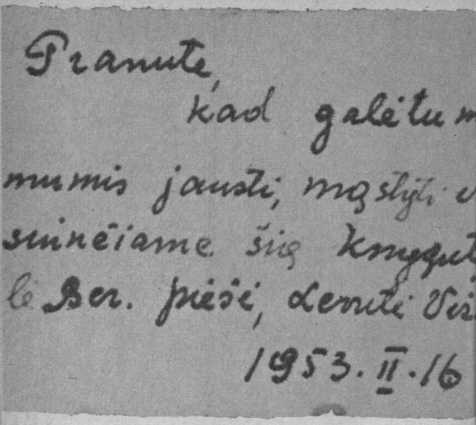 Pranute,
kad galėtum
mumis jausti, mąstyti
siunčiame šią knygut
lė Ber. piešė, Lenutė
1953.II.16